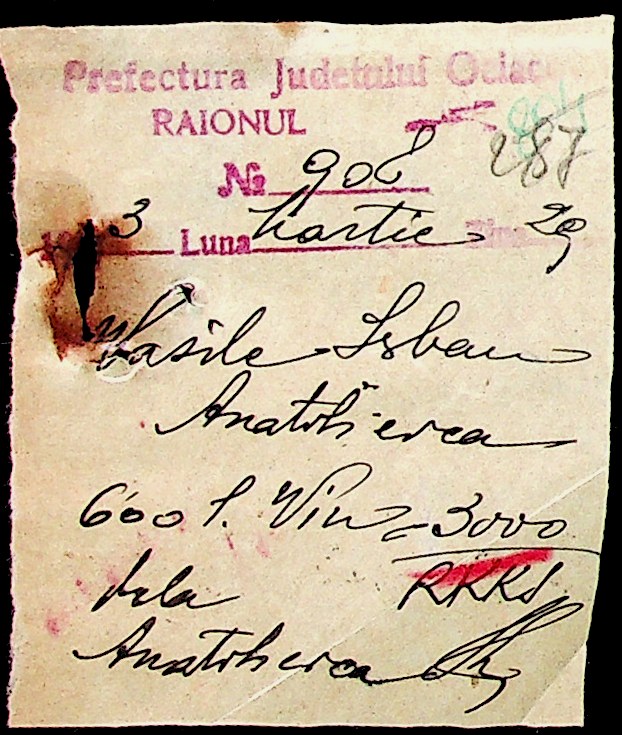 Prefectura Judetului Ociacov
RAIONUL
904
287
№ 908
3 Luna Martie 29
Vasile Serban
Anatolievca
600 l. Vin = 3000
dela RKKS
Anatolievca